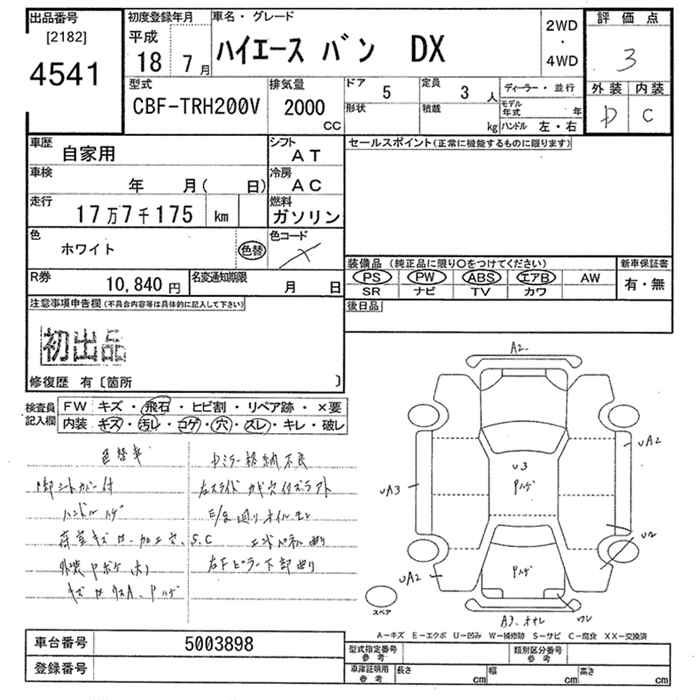 出品番号 初度登録年月 車名・グレード 2WD 評価点
[2182] 平成 ハイエース バン DX ・ 3
4541 18 7月 4WD
型式 排気量 ドア 5 定員 3人 ディーラー・並行 外装 内装
CBF-TRH200V 2000 cc 形状 積載 kg モデル年式 年 D C
ハンドル 左・右
車歴 自家用 シフト AT セールスポイント(正常に機能するものに限ります)
車検 年 月( 日) 冷房 AC
走行 17万7千175 km 燃料 ガソリン
色 ホワイト 色替 色コード
装備品 (純正品に限り○をつけてください) 新車保証書
PS PW ABS エアB AW 有・無
R券 10,840円 名変通知期限 月 日 SR ナビ TV カワ
注意事項申告欄(不具合内容等は具体的に記入して下さい) 後日品
初出品
修復歴 有〔箇所 〕
検査員記入欄 FW キズ・飛石・ヒビ割・リペア跡・×要
内装 キズ・汚レ・コゲ・穴・スレ・キレ・破レ
A2
UA2
U3
Pハゲ
UA3
Pハゲ
UA2
スペア
ハンドルハゲ
A-キズ E-エクボ U-凹み W-補修跡 S-サビ C-腐食 XX-交換済
車台番号 5003898 型式指定番号 参考 類別区分番号 参考
登録番号 車庫証明用 参考 長さ cm 幅 cm 高さ cm